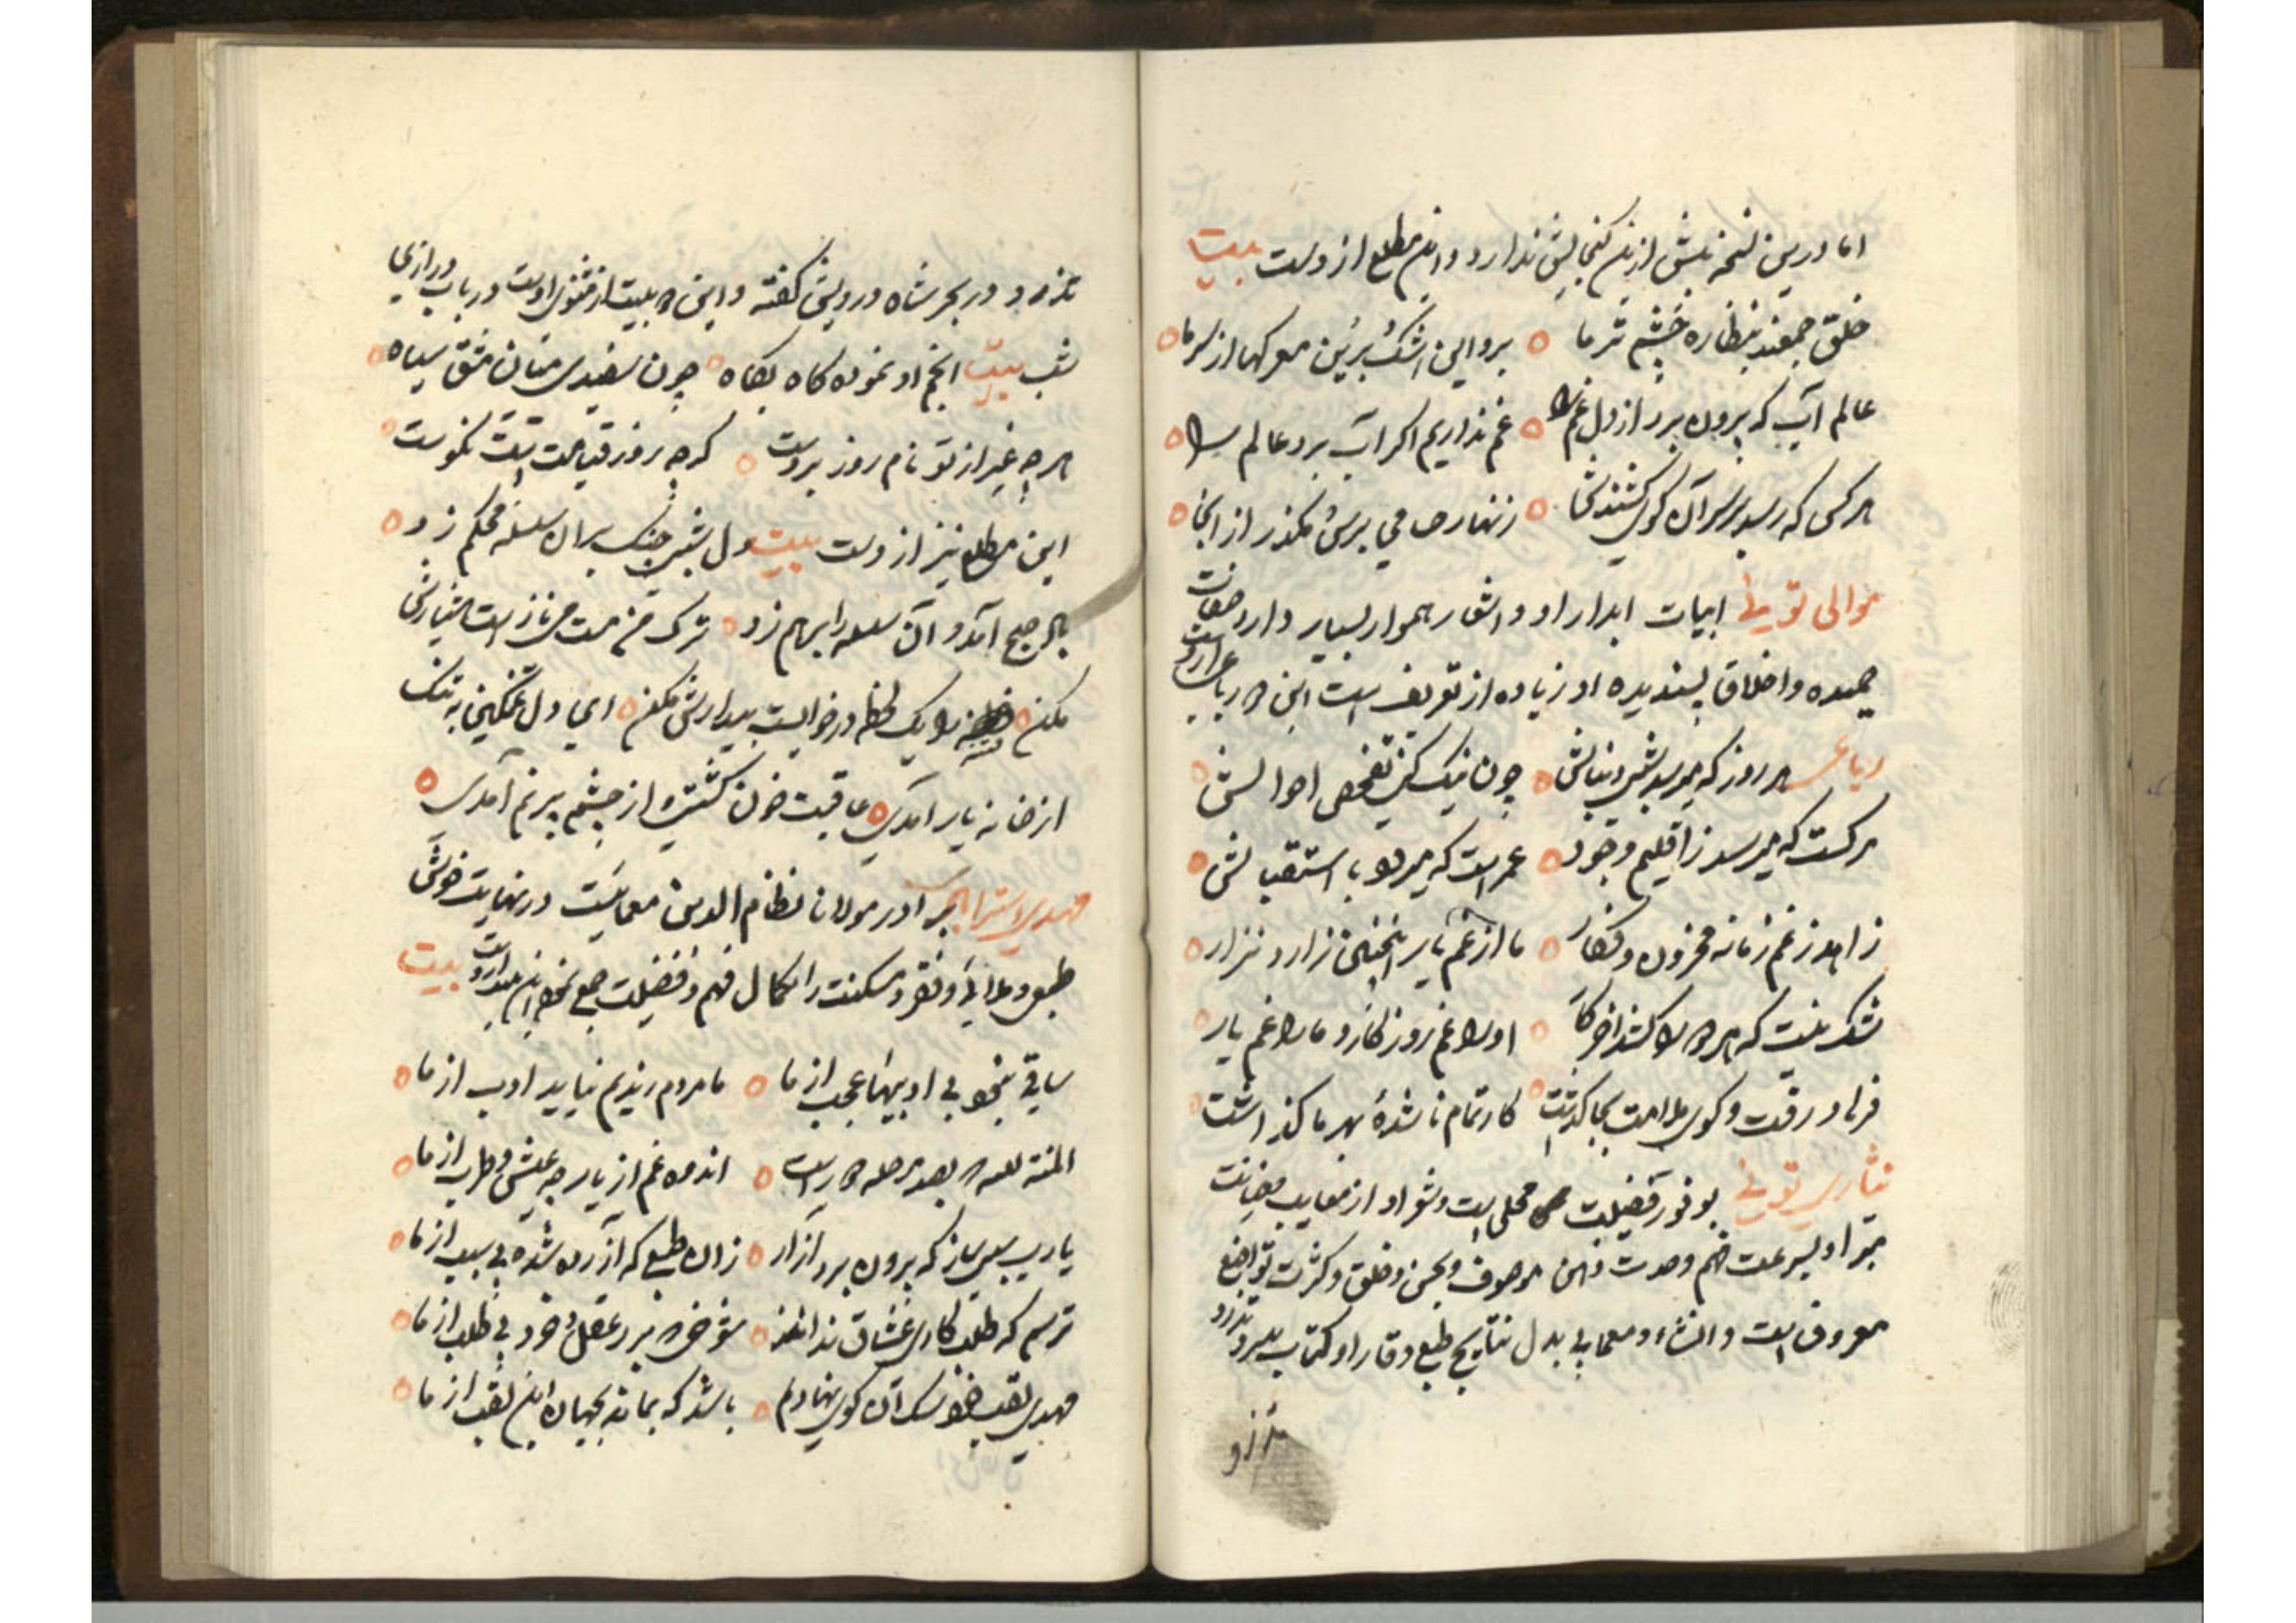 اما درین نسخه بیش ازین گنجایش ندارد و این مطلع از وست بیت
خلق جمعند بنظاره چشم تر ما برو ای اشک برین معرکها از سر ما
عالم آب که بیرون برد از دل غم را غم نداریم اکر آب برد عالم را
هر کس که رسد بر سر آن کوی کشندش زنهار می برس مکذر از اینجا
موالی تونی ابیات ابدار او و اشعار هموار بسیار دارد صفات
حمیده و اخلاق پسندیده او زیاده از تعریف است این رباعی از وست
رباعی هر روز که میرسد شبی دنبالش چون نیک کنی تفحص احوالش
مرکست که میرسد ز اقلیم وجود عمر است که میرود باستقبالش
زاهد ز غم زمانه محزون و فکار ما از غم یار اینچنین زار و نزار
شک نیست که هر دو را کشد اخر کار او را غم روزکار و ما را غم یار
فرهاد رفت و کوی ملامت بجا کذاشت کار تمام ناشده بهر ما کذاشت
نثاری تونی بوفور فضیلت محلی است و شعر او از معایب
مبرا و بسرعت فهم وحدت ذهن موصوف و بحسن وخلق و کثرت تواضع
معروف است و انشاء و معمای بی بدل نتایج طبع وقار او کتاب سرو و تذرو
تذرو
تذرو در بحر شاه و درویش کفته و این دو بیت از مثنوی اوست در باب درازی
شب بیت انجم او نموده کاه بکاه چون سفیدی میان مشق سیاه
هر چه غیر از تو نام روز بروست کرچه روز قیامت است نکوست
این مطلع نیز از وست بیت دل بشب چنک بران سلسله محکم زد
باد صبح آمد و آن سلسله را برهم زد ترک من مست می ناز است هشیارش
مکن یک لحظه در خوابست بیدارش مکن ای دل غمکین به تنک
از خانه یار آمدی عاقبت خون کشتی و از چشم پر نم آمدی
مهدی استرابادی برادر مولانا نظام الدین معمایست در نهایت خوش
طبعی و ملایی و فقر و مسکنت را بکمال فهم و فضیلت جمع نموده این از وست بیت
ساقی نبخو بی ادبیها عجب از ما ما مردم رندیم نیاید ادب از ما
المنة لله بصد مرحله دور است اندوه و غم از یار چه عیش و طرب از ما
یا رب سببی ساز که بیرون برد آزار زان طبع که آزرده شده بی سبب از ما
ترسم که طلبکاری عشاق نداند شوخی که برد عقل و خرد بی طلب از ما
مهدی لقب خود سک آن کوی نهادم باشد که بماند بجهان این لقب از ما